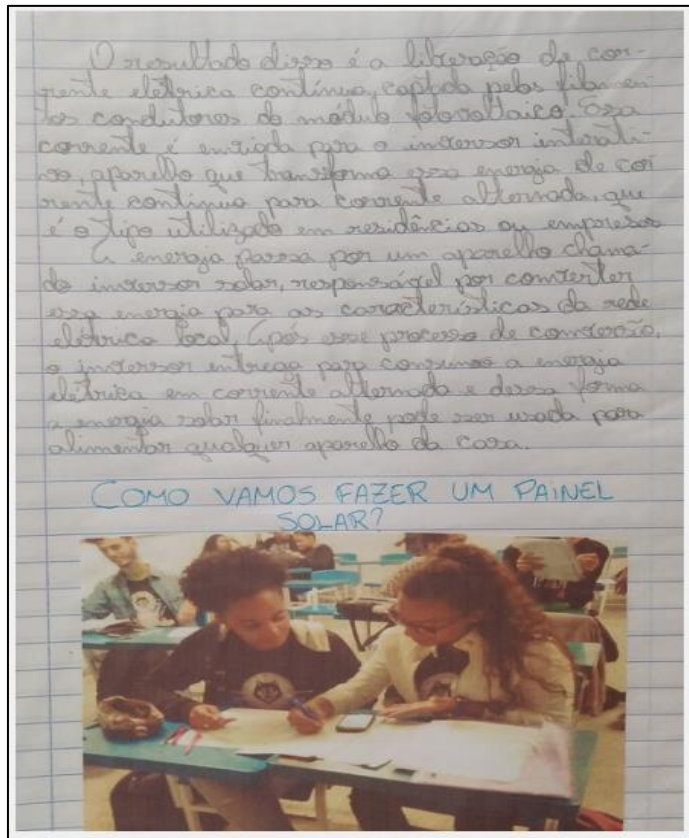 O resultado disso é a liberação de cor-
rente elétrica contínua, captada pelos filamen-
tos condutores do módulo fotovoltaico. Essa
corrente é enviada para o inversor interati-
vo, aparelho que transforma essa energia de cor
rente contínua para corrente alternada, que
é o tipo utilizado em residências ou empresas
A energia passa por um aparelho chama-
do inversor solar, responsável por converter
essa energia para as características da rede
elétrica local. Após esse processo de conversão,
o inversor entrega para consumo a energia
elétrica em corrente alternada e dessa forma
a energia solar finalmente pode ser usada para
alimentar qualquer aparelho da casa.
COMO VAMOS FAZER UM PAINEL
SOLAR?